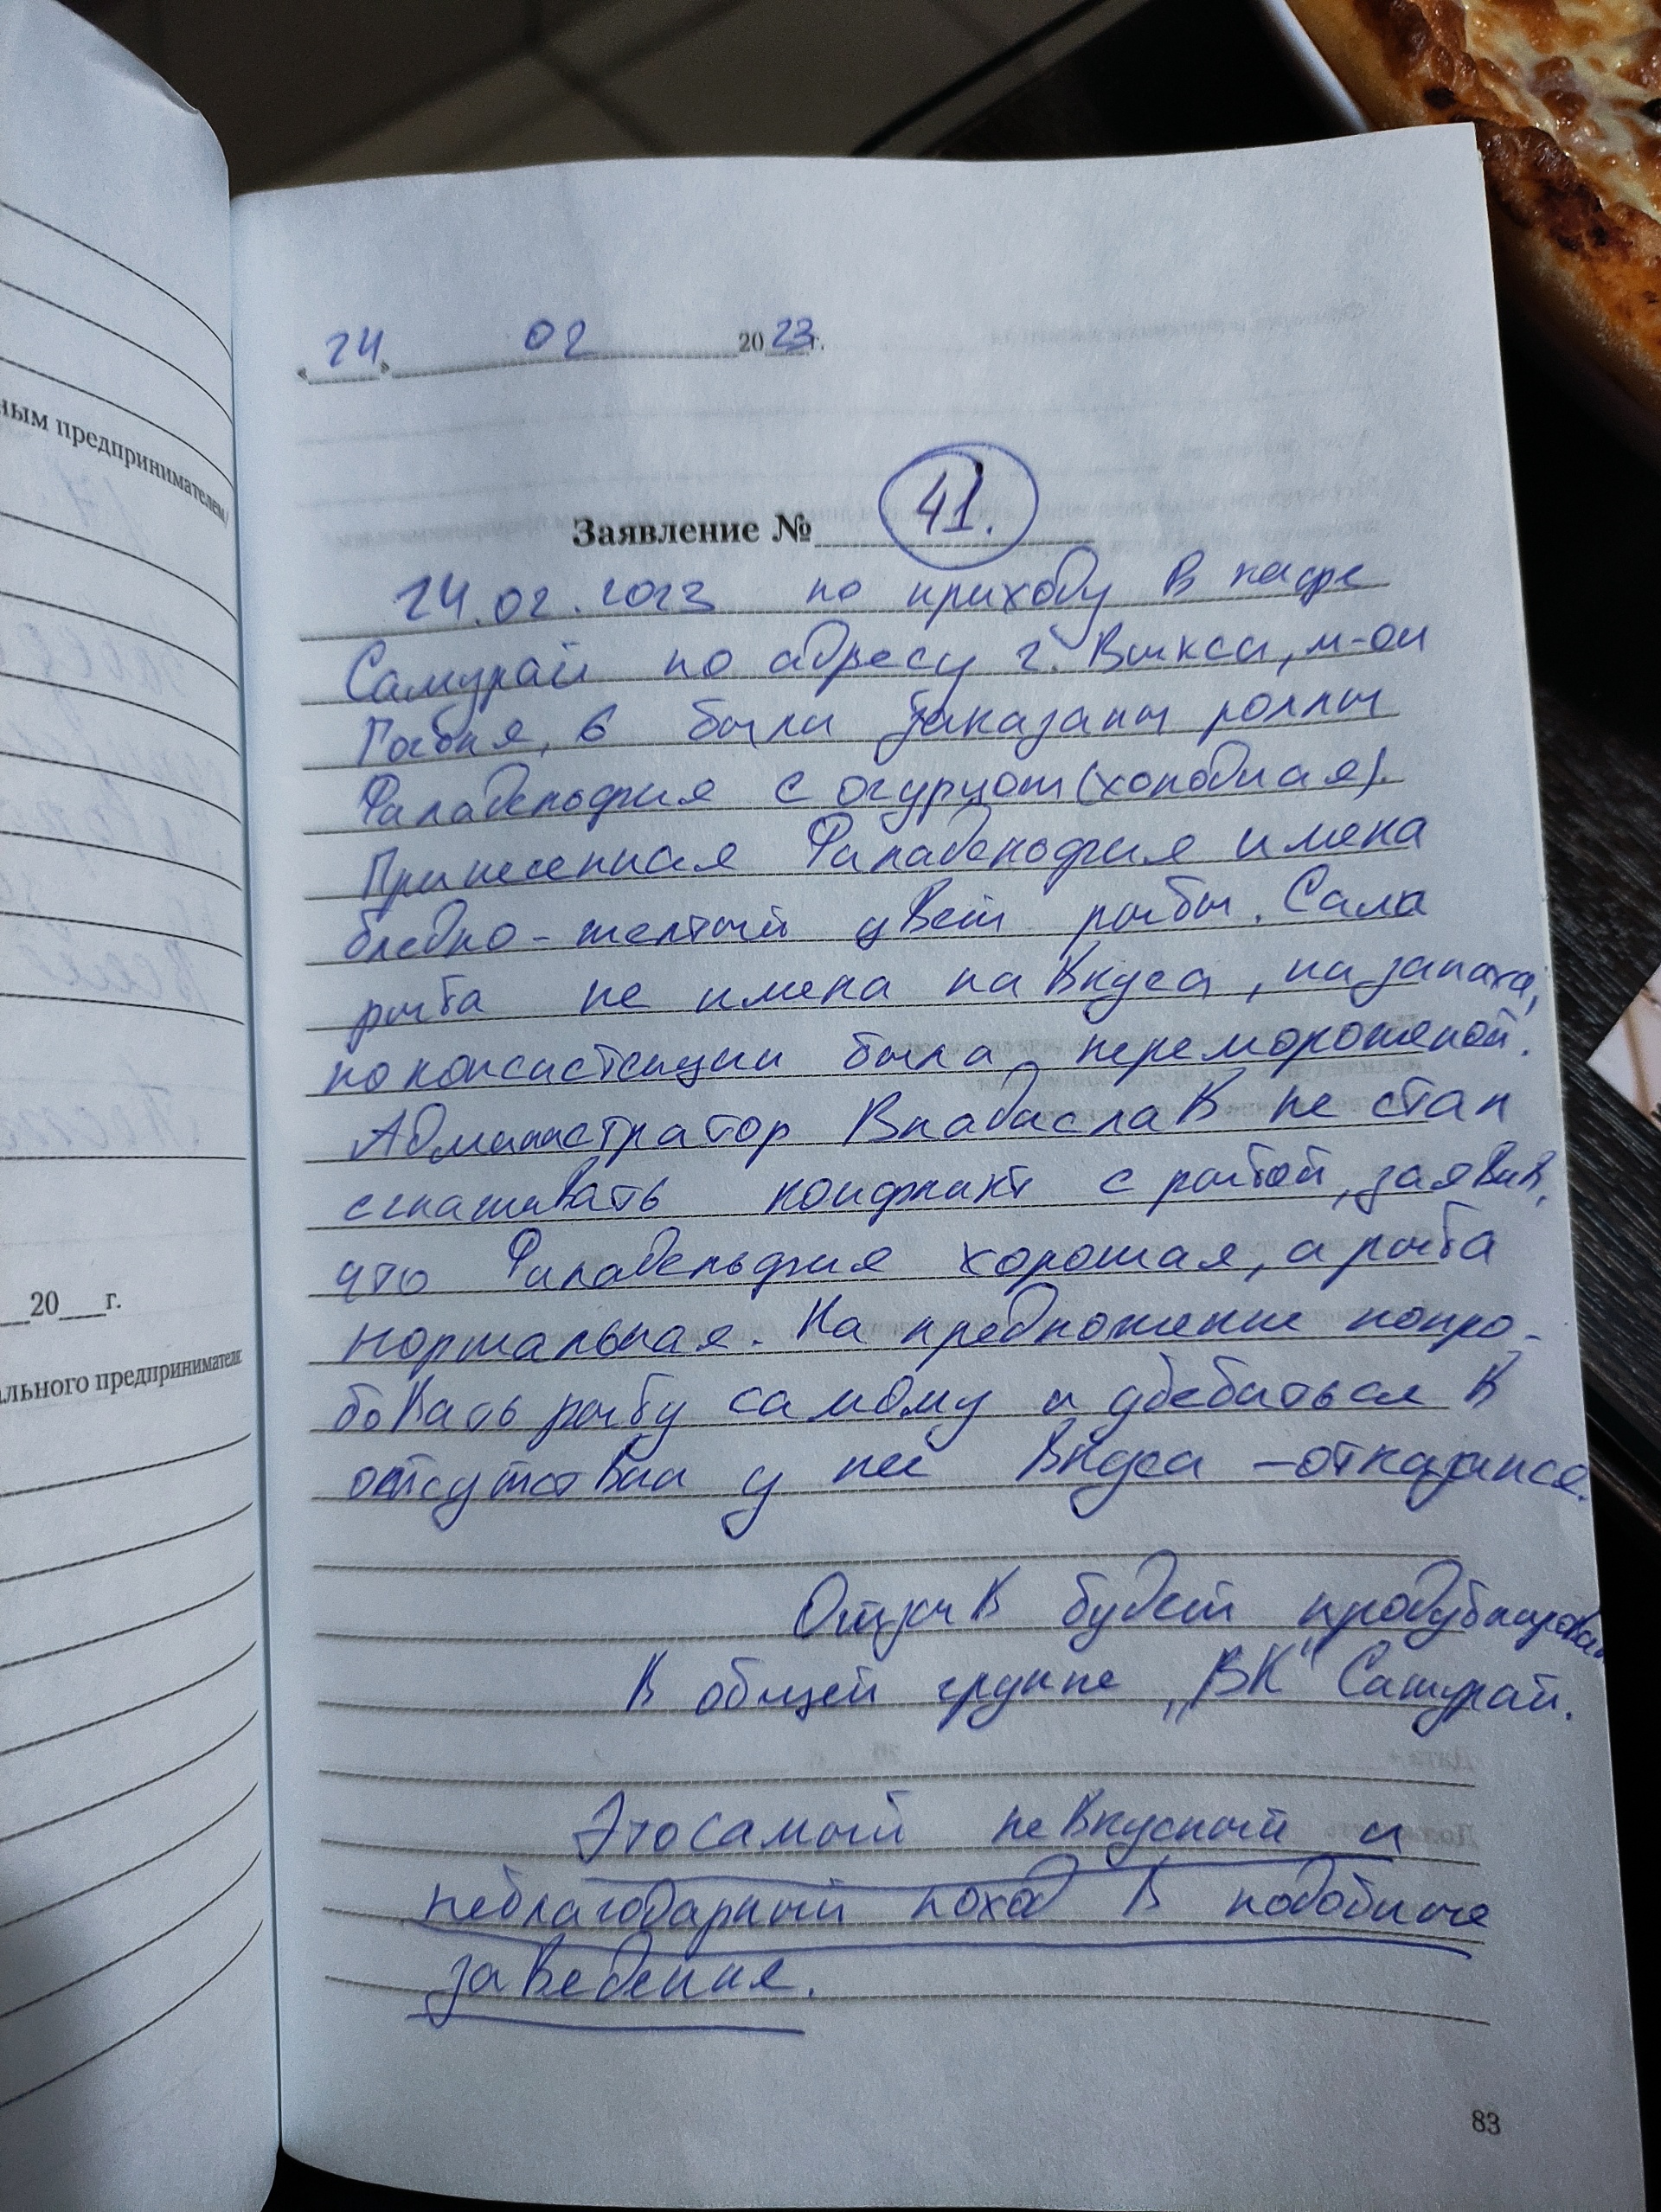 ным предпринимателем/
20 г.
ального предпринимателя
«24» 02 2023г.
Заявление № 41.
24.02.2023 по приходу в кафе
Самурай по адресу г. Выкса, м-он
Гоголя, 6 были заказаны роллы
Филадельфия с огурцом (холодная).
Принесенная Филадельфия имела
бледно-желтый цвет рыбы. Сама
рыба не имела ни вкуса, ни запаха,
по консистенции была перемороженой.
Администратор Владислав не стал
сглаживать конфликт с рыбой, заявив,
что Филадельфия хорошая, а рыба
нормальная. На предложение попро-
бовать рыбу самому и убебиться в
отсутствии у неё вкуса – отказался.
Отзыв будет продублирован
в общей группе "ВК" Самурай.
Это самый невкусный и
неблагодарный поход в подобные
заведения.
83